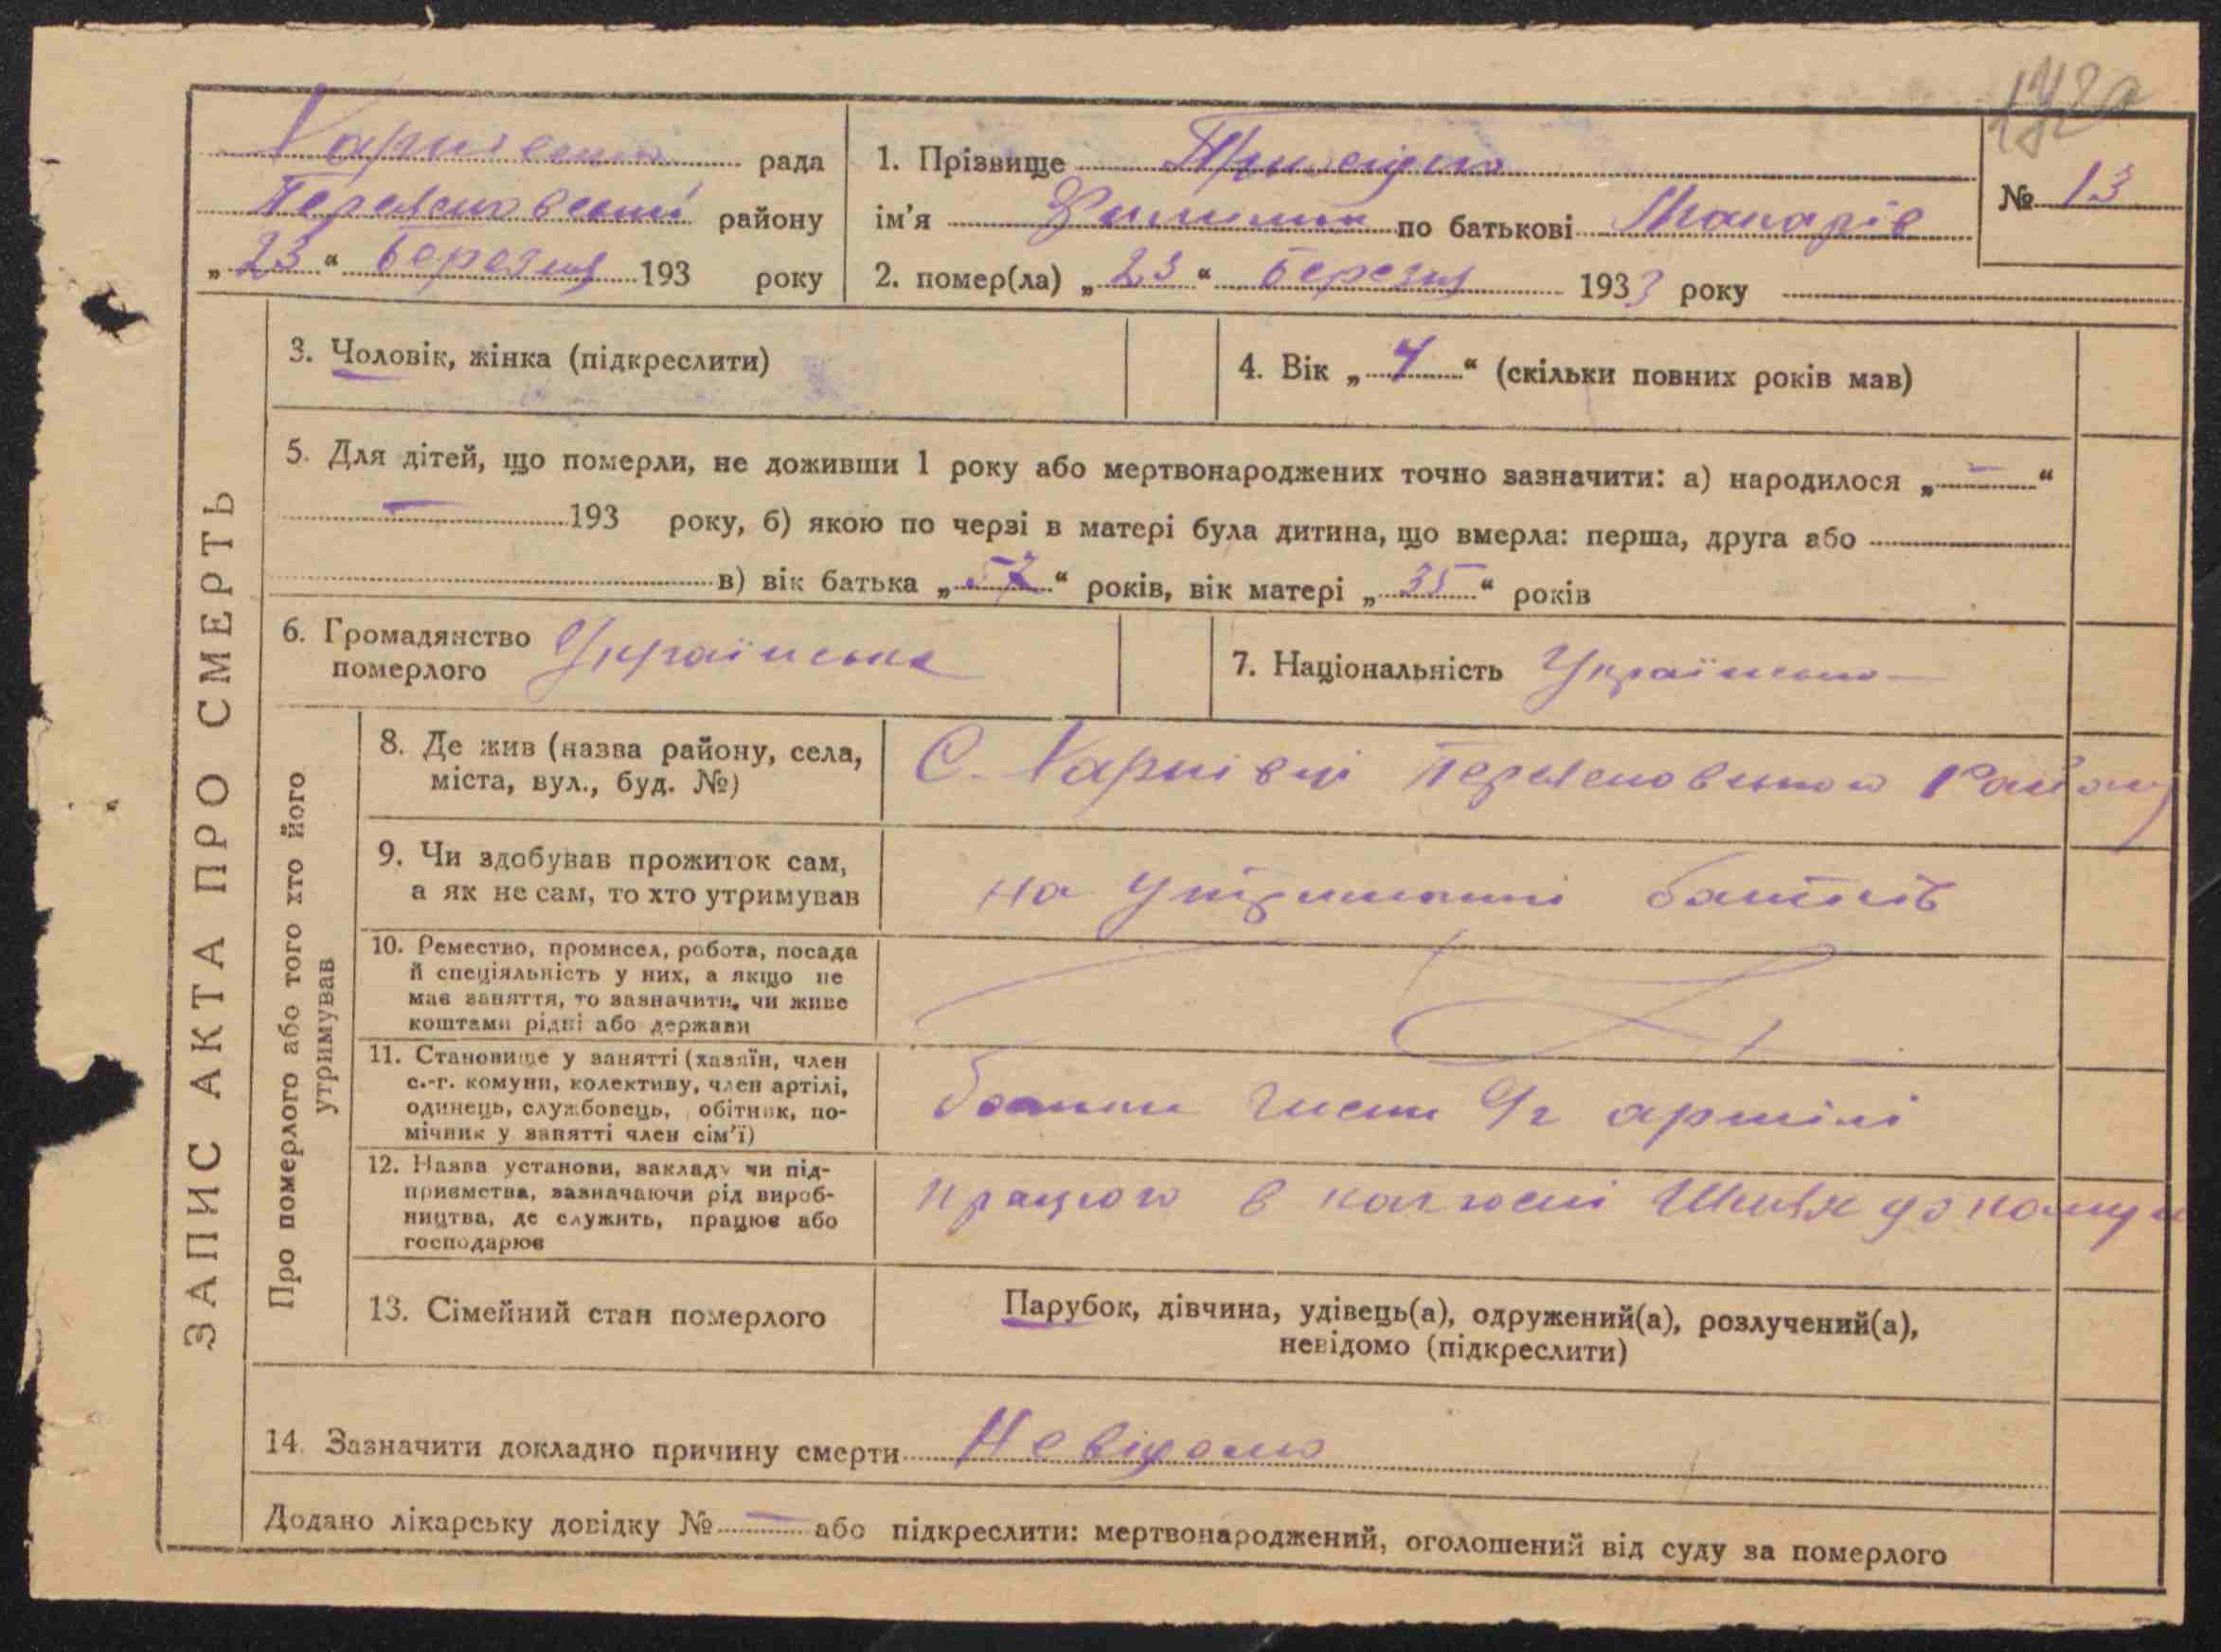 172а
рада
району
„ 23 “ березня 193 року
1. Прізвище
ім'я Филимон по батькові Макарів
2. помер(ла) „ 23 “ березня 1933 року
№ 13
ЗАПИС АКТА ПРО СМЕРТЬ
3. Чоловік, жінка (підкреслити)
4. Вік „ 4 “ (скільки повних років мав)
5. Для дітей, що померли, не доживши 1 року або мертвонароджених точно зазначити: а) народилося „ – “
– 193 року, б) якою по черзі в матері була дитина, що вмерла: перша, друга або
в) вік батька „ 57 “ років, вік матері „ 35 “ років
6. Громадянство
померлого
Українське
7. Національність
Про померлого або того хто його
утримував
8. Де жив (назва району, села,
міста, вул., буд. №)
С. Харківці Району
9. Чи здобував прожиток сам,
а як не сам, то хто утримував
на утриманні батьків
10. Ремество, промисел, робота, посада
й спеціяльність у них, а якщо не
має заняття, то зазначити, чи живе
коштами рідні або держави
11. Становище у занятті (хазяїн, член
с.-г. комуни, колективу, член артілі,
одинець, службовець, обітник, по-
мічник у занятті член сім'ї)
батьки члени с/г артілі
12. Назва установи, закладу чи під-
приємства, зазначаючи рід вироб-
ництва, де служить, працює або
господарює
в колгоспі Шлях до
13. Сімейний стан померлого
Парубок, дівчина, удівець(а), одружений(а), розлучений(а),
невідомо (підкреслити)
14. Зазначити докладно причину смерти Невідомо
Додано лікарську довідку № – або підкреслити: мертвонароджений, оголошений від суду за померлого